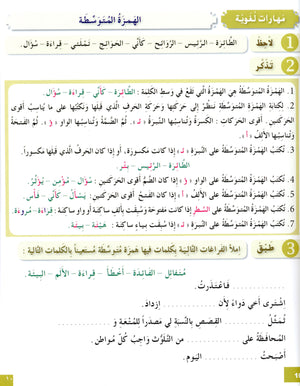 مهارات لغوية
الهمزة المتوسّطة
1 لاحظ
الطّائرة - الرّئيس - الرّوائح - كأنّي - الحوائج - تمتلئ - قراءة - سؤال.
2 تذكّر
1. الهمزة المتوسّطة هي الهمزة الّتي تقع في وسط الكلمة: الطّائرة - كأنّي - قراءة - سؤال.
2. لكتابة الهمزة المتوسّطة ننظر إلى حركتها وحركة الحرف الّذي قبلها ونكتبها على ما يناسب أقوى
الحركتين. أقوى الحركات: الكسرة وتناسبها النبرة « ئـ »، ثمّ الضّمّة وتناسبها الواو « ؤ »، ثمّ الفتحة
وتناسبها الألف « أ ».
3. تكتب الهمزة المتوسّطة على النّبرة « ئـ » إذا كانت مكسورة، أو إذا كان الحرف الّذي قبلها مكسوراً.
الطّائرة - الرّئيس - بئر.
4. تكتب الهمزة المتوسّطة على الواو « ؤ » إذا كان الضّمّ أقوى الحركتين: سؤال - مؤمن - يؤثر.
5. تكتب الهمزة المتوسّطة على الألف « أ » إذا كان الفتح أقوى الحركتين: يسأل - كأنّي - فأس.
6. تكتب الهمزة المتوسّطة على السّطر إذا كانت مفتوحة وسبقت بألف ساكنة أو واو ساكنة: قراءة - مروءة.
7. تكتب الهمزة المتوسّطة على النّبرة « ئـ » إذا سبقت بياء ساكنة: هيئة - بيئة.
3 طبّق
املأ الفراغات التّالية بكلمات فيها همزة متوسّطة مستعيناً بالكلمات التّالية:
متفائل - الفائدة - أخطأ - قراءة - الألم - البيئة.
........ فاعتذرت.
اشترى أخي دواء لأنّ ........ ازداد.
تمثّل ........ القصص بالنّسبة لي مصدراً للمتعة و ........
المحافظة على ........ من التّلوّث واجب كلّ مواطن.
أصبحت ........ اليوم.